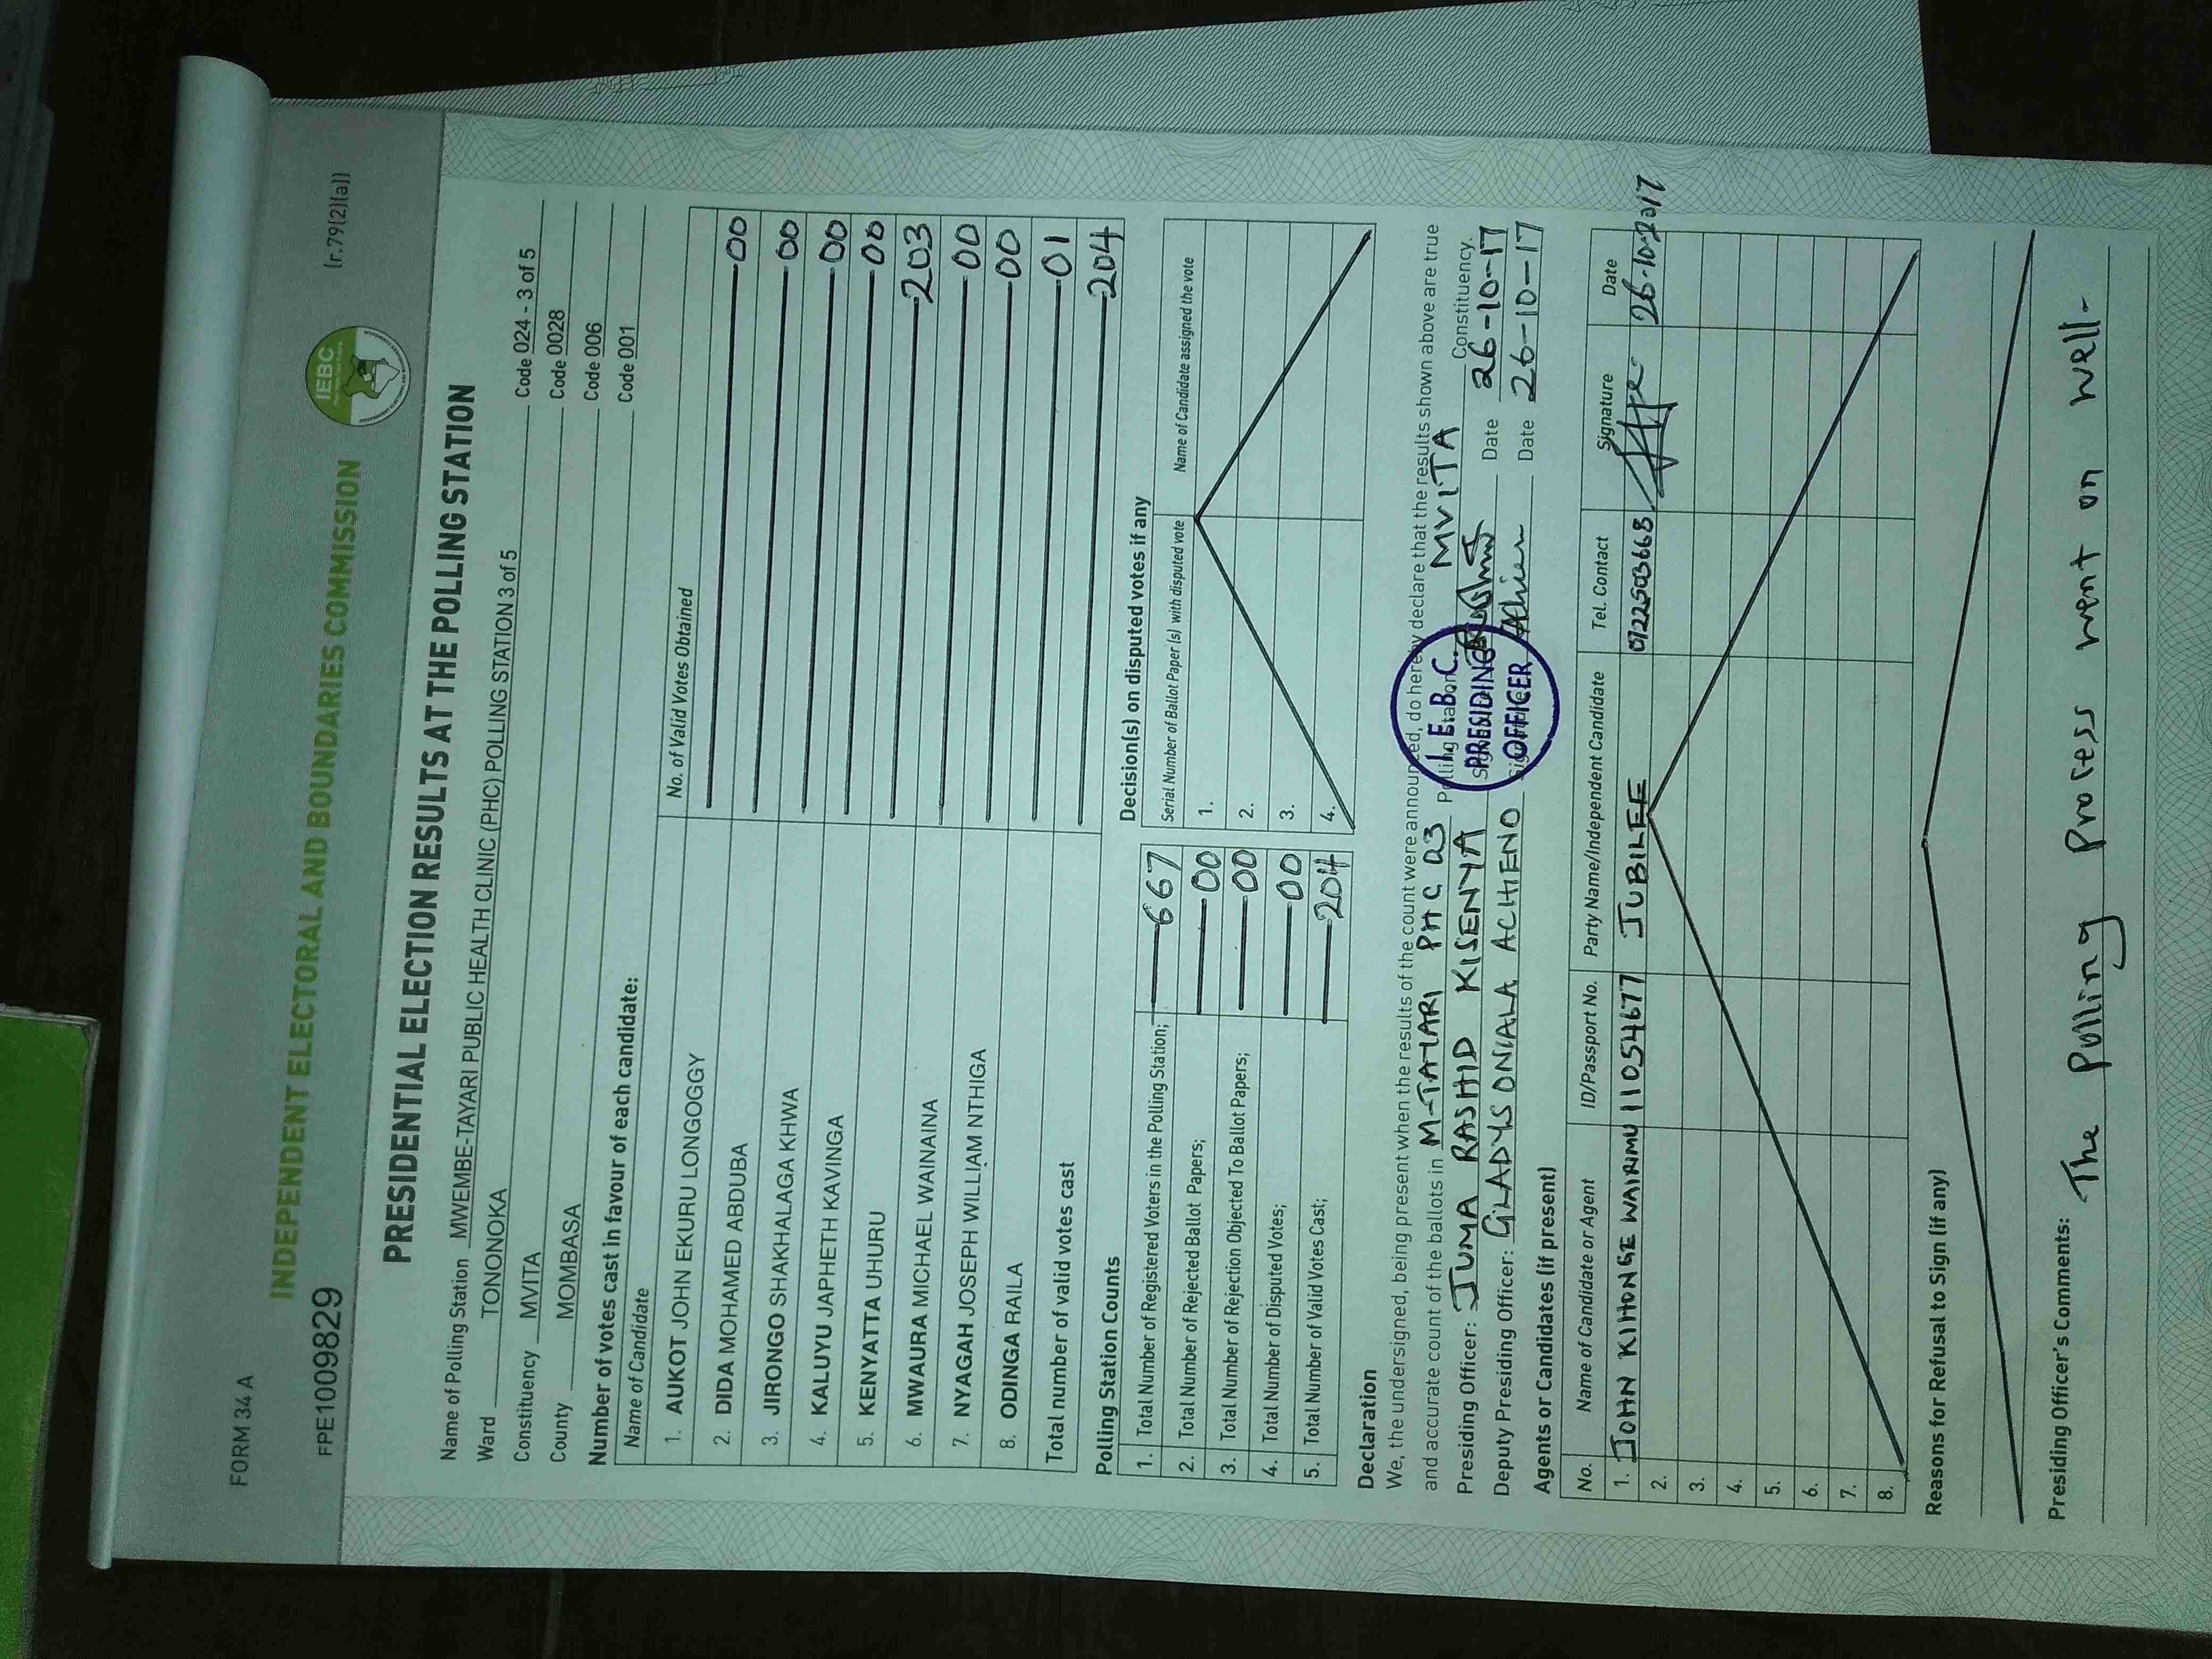 FORM 34 A
(r.79(2)(a))
FPE1009829
IEBC
INDEPENDENT ELECTORAL AND BOUNDARIES COMMISSION
PRESIDENTIAL ELECTION RESULTS AT THE POLLING STATION
Name of Polling Station MWEMBE-TAYARI PUBLIC HEALTH CLINIC (PHC) POLLING STATION 3 of 5 Code 024 - 3 of 5
Ward TONONOKA Code 0028
Constituency MVITA Code 006
County MOMBASA Code 001
Number of votes cast in favour of each candidate:
Name of Candidate No. of Valid Votes Obtained
1. AUKOT JOHN EKURU LONGOGGY 00
2. DIDA MOHAMED ABDUBA 00
3. JIRONGO SHAKHALAGA KHWA 00
4. KALUYU JAPHETH KAVINGA 00
5. KENYATTA UHURU 203
6. MWAURA MICHAEL WAINAINA 00
7. NYAGAH JOSEPH WILLIAM NTHIGA 00
8. ODINGA RAILA 01
Total number of valid votes cast 204
Polling Station Counts
1. Total Number of Registered Voters in the Polling Station; 667
2. Total Number of Rejected Ballot Papers; 00
3. Total Number of Rejection Objected To Ballot Papers; 00
4. Total Number of Disputed Votes; 00
5. Total Number of Valid Votes Cast; 204
Decision(s) on disputed votes if any
Serial Number of Ballot Paper (s) with disputed vote Name of Candidate assigned the vote
1.
2.
3.
4.
Declaration
We, the undersigned, being present when the results of the count were announced, do hereby declare that the results shown above are true
and accurate count of the ballots in M-TAYARI PHC 03 Polling Station MVITA Constituency.
Presiding Officer: JUMA RASHID KISENYA Date 26-10-17
Deputy Presiding Officer: GLADYS ONYALA ACHIENO Achien Date 26-10-17
I.E.B.C.
PRESIDING
OFFICER
Agents or Candidates (if present)
No. Name of Candidate or Agent ID/Passport No. Party Name/Independent Candidate Tel. Contact Signature Date
1. JOHN KIHONGE WAIRIMU 11054677 JUBILEE 0722503668 26-10-2017
2.
3.
4.
5.
6.
7.
8.
Reasons for Refusal to Sign (if any)
Presiding Officer's Comments: The Polling Process went on well-